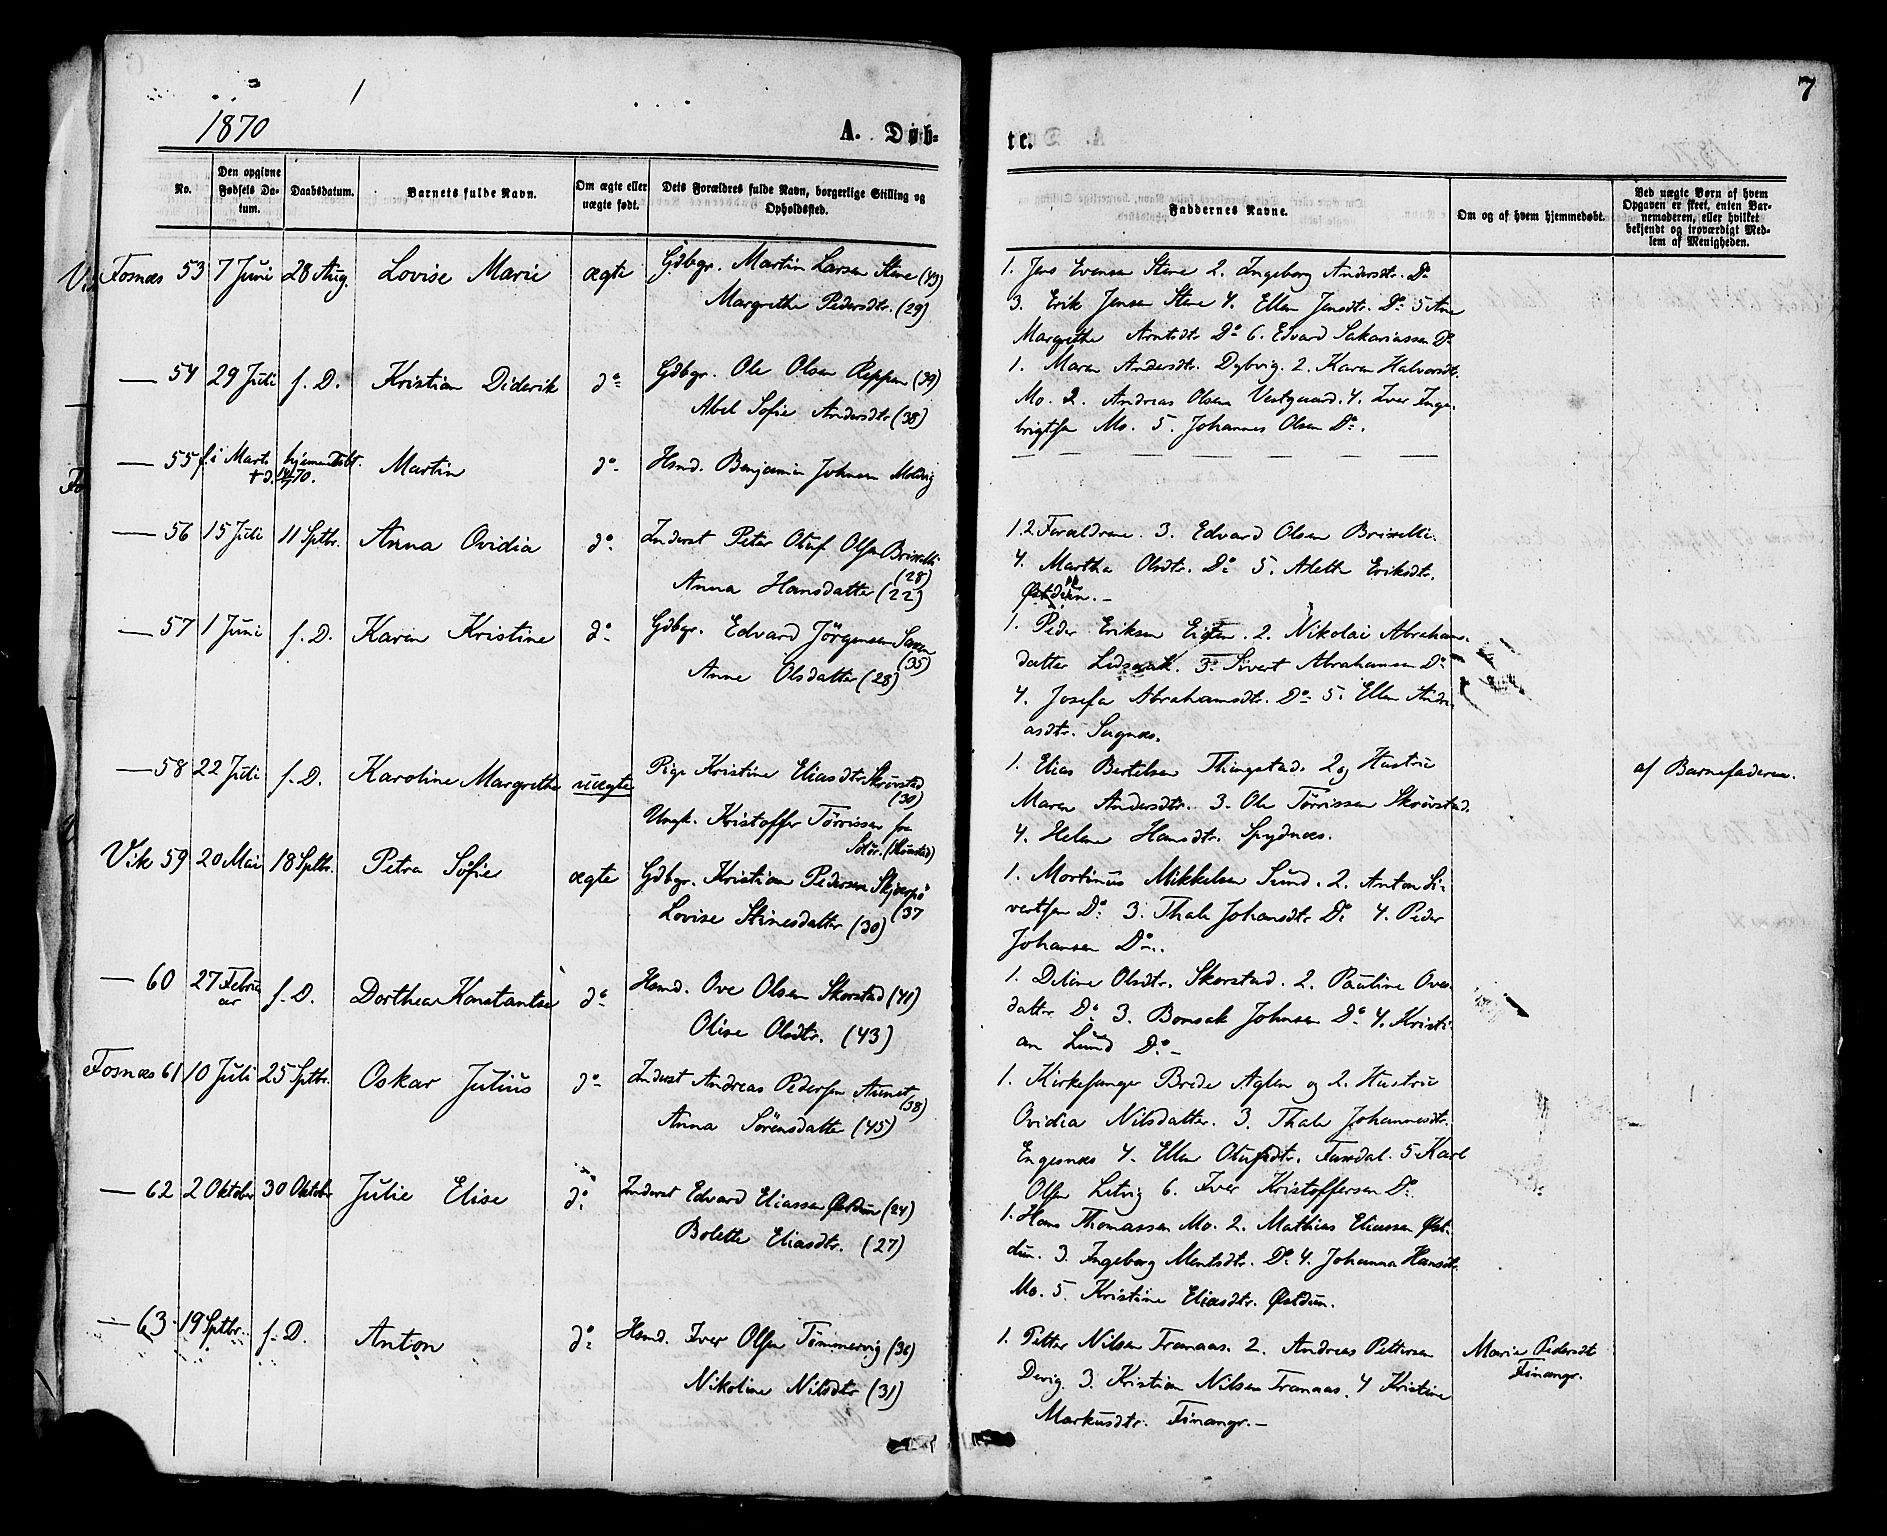 7
1870
A. Døb-
te.
No.
Den opgivne Fødsels Da-tum.
Daabsdatum.
Barnets fulde Navn.
Om ægte eller uægte født.
Dets Forældres fulde Navn, borgerlige Stilling og Opholdssted.
Faddernes Navne.
Om og af hvem hjemmedøbt.
Ved uægte Børn af hvem Opgaven er skeet, enten Bar-nemoderen, eller hvilket bekjendt og troværdigt Med-lem af Menigheden.
Fosnæs 53 7 Juni 28 Aug. Lovise Marie ægte Gdbgr. Martin Larsen Stene (43)
Margrethe Pedersdtr. (29)
1. Jens Evensen Stene 2. Ingeborg Andersdtr. Do
3. Erik Jensen Stene 4. Ellen Jensdtr. Do 5 Ane
Margrethe Arntsdtr. Do 6. Edvard Sakariassen Do
— 54 29 Juli f. D. Kristian Diderik do Gdbgr. Ole Olsen Reppen (39)
Abel Sofie Andersdtr (38)
1. Maren Andersdtr. Dybvig. 2. Karen Halvorsdtr.
Mo. 2. Andreas Olsen Vestgaard. 4. Iver Inge-
brigtsen Mo. 5. Johannes Olsen Do.
— 55 f. i Marts hjemmedøbt. Martin do Hsmd. Benjamin Johnsen Moldvig
+ d. 14/7 70.
— 56 15 Juli 11 Sptbr. Anna Ovidia do Inderst Peter Oluf Olsen
(28)
Anna Hansdatter (22)
1.2 Forældrene. 3. Edvard Olsen
4. Martha Olsdtr. Do 5. Aleth Eriksdtr.
— 57 1 Juni f. D. Karen Kristine do Gdbgr. Edvard Jørgensen
(35)
Anne Olsdatter (28)
1. Peder Eriksen 2. Nikolai Abraham-
datter 3. Sivert Abrahamsen Do
4. Josefa Abrahamsdtr. Do 5. Ellen Andre-
asdtr. Sagnæs.
— 58 22 Juli f. D. Karoline Margrethe uægte Pige Kristine Eliasdtr. Skrøvstad
(30)
Ungk. Kristoffer Tørrissen fra
1. Elias Bertelsen Thingstad. 2 og Hustru
Maren Andersdtr. 3. Ole Tørrissen Skrøvstad.
4. Helene Hansdtr. Spydnæs.
af Barnefaderen.
Vik 59 20 Mai 18 Sptbr. Petra Sofie ægte Gdbgr. Kristian Pedersen Skjærpø
(37
Lovise Stinesdatter (30)
1. Mortinus Mikkelsen Sund. 2. Anton Si-
vertsen Do 3. Thale Johansdtr. Do 4. Peder
Johansen Do.
— 60 27 Febru-ar f. D. Dorthea Konstantse do Hsmd. Ove Olsen Skorstad (41)
Olise Olsdtr. (43)
1. Olsdtr. Skorstad. 2. Pauline Oves-
datter Do 3. Bonsak Johnsen Do 4. Kristi-
an Lund Do —
Fosnæs 61 10 Juli 25 Sptbr. Oskar Julius do Inderst Andreas Pedersen Aunet
(38)
Anna Sørensdatter (45)
1. Kirkesanger Brede Aglen og 2. Hustru
Ovidia Nilsdatter. 3. Thale Johannesdtr.
Engesnæs 4. Ellen Olufsdtr. Faksdal. 5 Karl
Olsen Letvig 6. Iver Kristoffersen Do
— 62 2 Oktober 30 Oktober Julie Elise do Inderst Edvard Eliassen Østdun (24)
Bolette Eliasdtr. (27)
1. Hans Thomassen Mo. 2. Mathias Eliassen Øst-
dun. 3. Ingeborg Mentsdtr. Do 4. Johanna Hansdtr.
Mo. 5. Kristine Eliasdtr. Østdun.
— 63 19 Sptbr. f. D. Anton do Hsmd. Iver Olsen Tømmervig (36)
Nikoline Nilsdtr (31)
1. Petter Nilsen Tranaas. 2. Andreas Pettersen
Devig. 3. Kristian Nilsen Tranaas. 4 Kristine
Markusdtr. Finangr. —
Marie Pedersdt
Finangr.